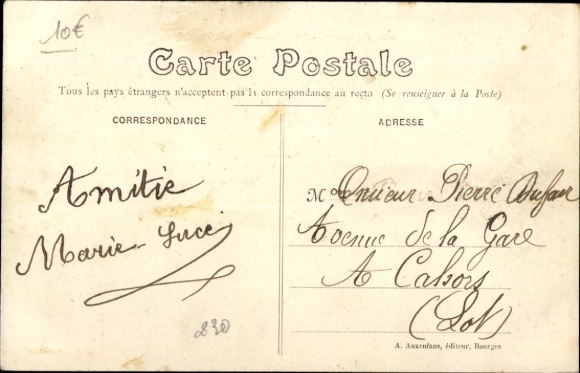 10€
Carte Postale
Tous les pays étrangers n'acceptent pas la correspondance au recto (Se renseigner à la Poste)
CORRESPONDANCE
ADRESSE
Amitié
Marie-Luce
Monsieur Pierre Dufour
Avenue de la Gare
A Cahors
(Lot)
830
A. Auxenfans, éditeur, Bourges